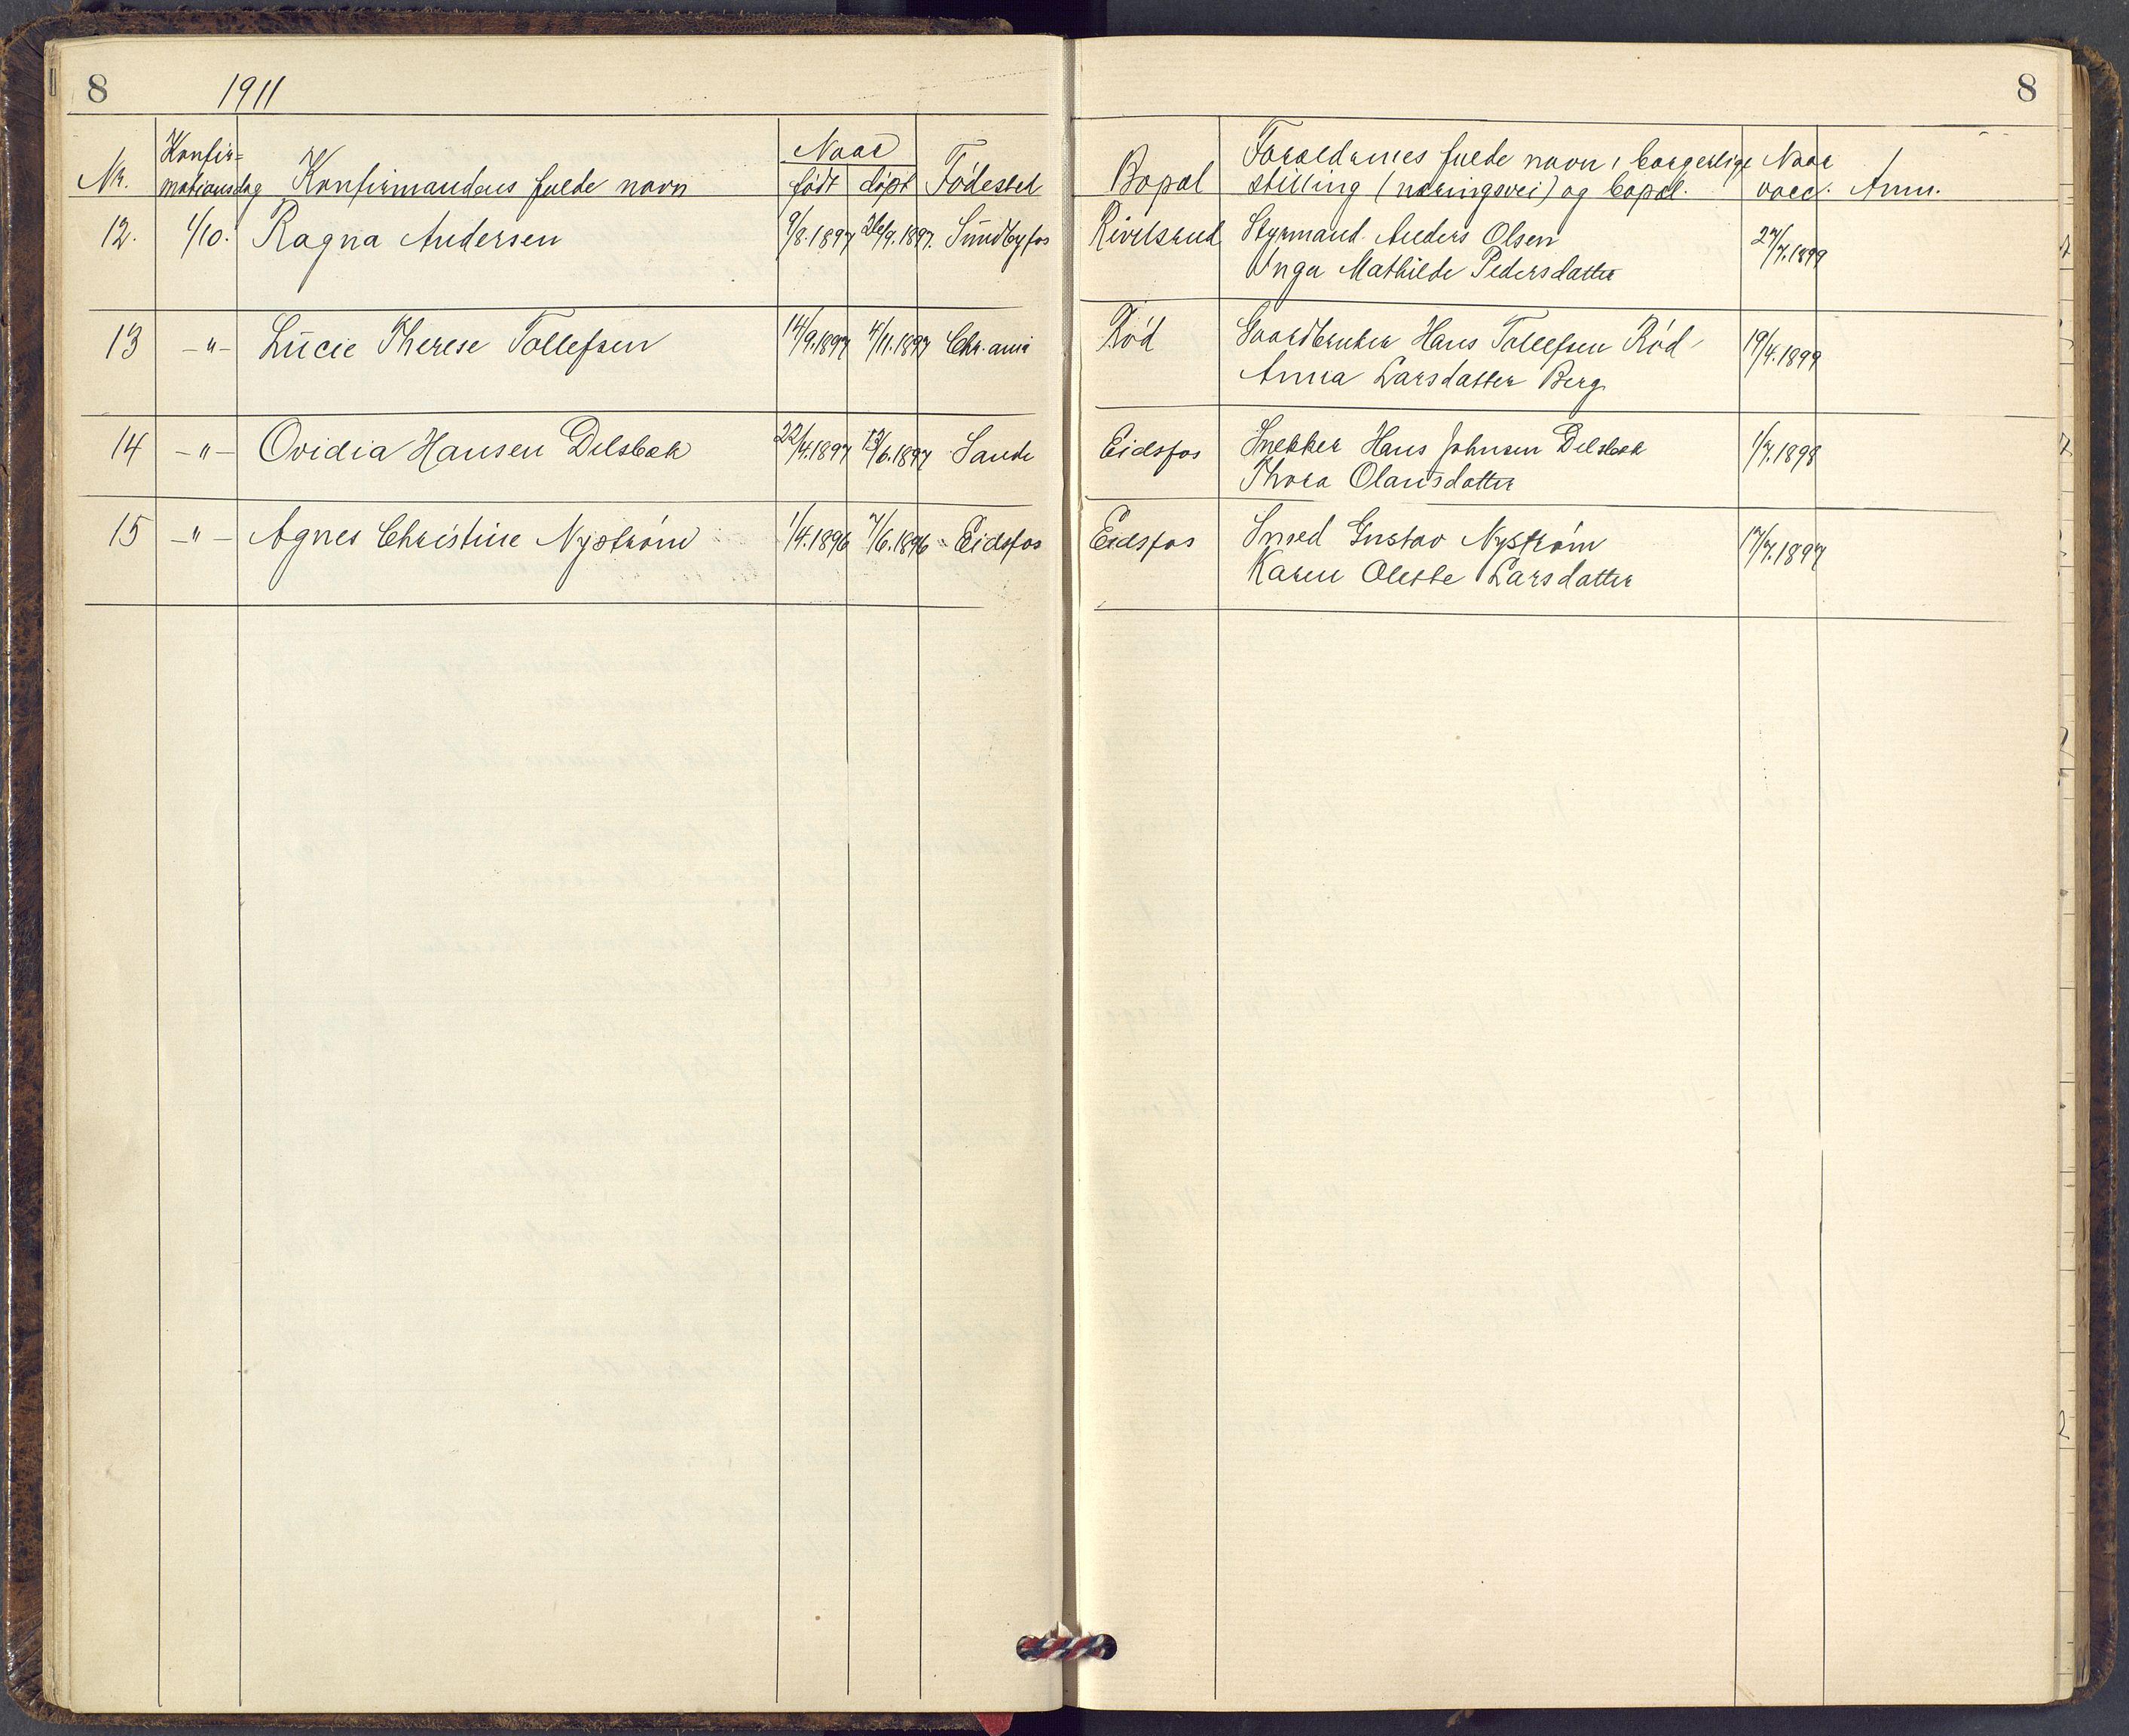 8 1911 8
Konfir= Naar Forældrenes fulde navn, borgerlige Naar
Nr. mationsdag Konfirmandens fulde navn født døpt Fødested Bopæl stilling (næringsvei) og bopæl. vacc. Anm.
12. 1/10. Ragna Andersen 9/8.1897 26/9.1897. Sundbyfos Styrmand Anders Olsen 27/7.1899
Inga Mathilde Pedersdatter
13 -"- Lucie Therese Tollefsen 14/9.1897 4/11.1897 Chr.ania Rød Gaardbruker Hans Tollefsen Rød 19/4.1899
Anna Larsdatter Berg
14 -"- Ovidia Hansen Delsbæk 22/4.1897 13/6.1897 Sande Eidsfos Snekker Hans Johnsen Delsbæk 1/7.1898
Thora Olausdatter
15 -"- Agnes Christine Nystrøm 1/4.1896 7/6.1896 Eidsfos Eidsfos Smed Gustav Nystrøm 17/7.1897
Karen Oleste Larsdatter